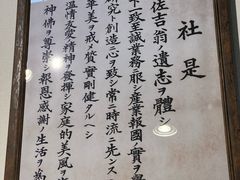 社是
佐吉翁ノ遺志ヲ體シ
下一致至誠業務ニ服シ産業報國ノ實ヲ
究ト創造ニ心ヲ致シ常ニ時流ニ先ンス
華美ヲ戒メ質實剛健タルヘシ
温情友愛ノ精神ヲ發揮シ家庭的美風ヲ
神佛ヲ尊崇シ報恩感謝ノ生活ヲ爲